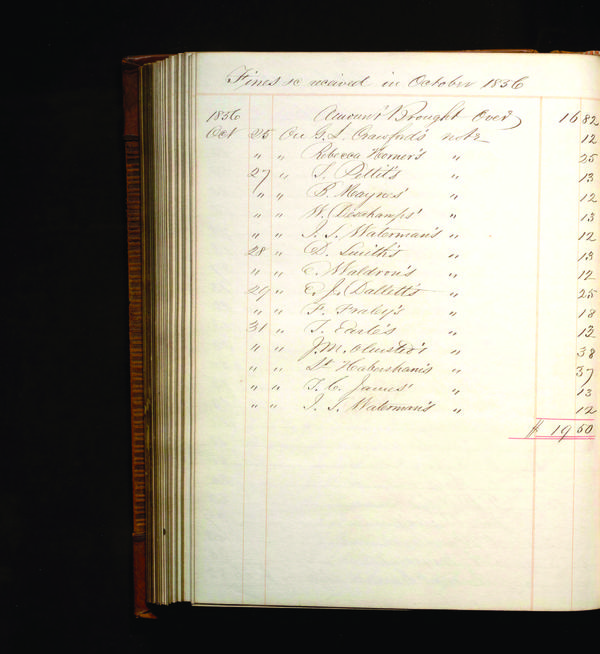 Fines &c received in October 1856
1856 Amount Brought Over 16 82
Oct 25 On G. L. Crawford's note 12
" " Rebecca Horner's " 25
27 " T. Pettit's " 13
" " B. Haynes' " 12
" " W. Deschamps' " 13
" " I. S. Waterman's " 12
28 " D. Smith's " 13
" " E. Waldron's " 12
29 " E. J. Dallett's " 25
" " F. Fraley's " 18
31 " T. Earle's " 13
" " J. M. Olmsted's " 38
" " Habersham's " 37
" " T. C. James' " 13
" " I. S. Waterman's " 12
$ 19 50